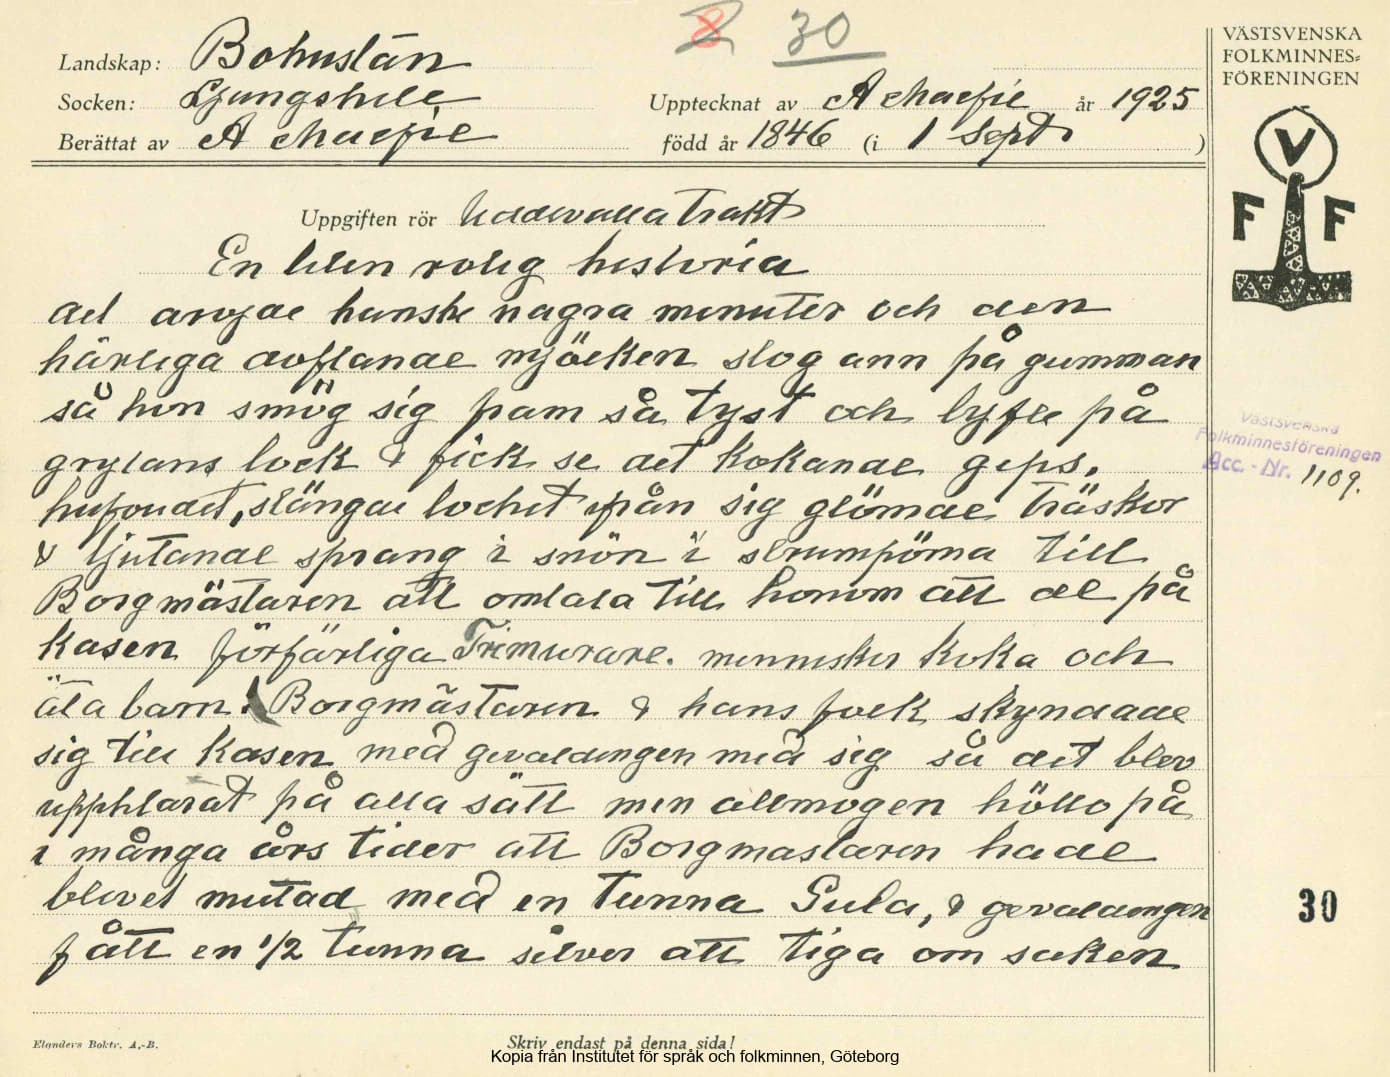 8 30
VÄSTSVENSKA
FOLKMINNES=
FÖRENINGEN
Landskap: Bohuslän
Socken: Ljungskile
Upptecknat av A Macfie år 1925
Berättat av A Macfie
född år 1846 (i 1 Sept )
V
F F
Uppgiften rör Uddevalla Trakt
En liten rolig historia
det dröjde kanske nagra minuter och den
härliga doftande mjöcken slog ann på gumman
så hon smög sig fram så tyst och lyfte på
grytans lock & fick se det kokande gips.
hufoudet, slängde locket ifrån sig glömde träskor
& ljutande sprang i snön i strumporna till
Borgmästaren att omtala till honom att de på
Kasen förfärliga Frimurare. menniskor koka och
äta barn. Borgmästaren & hans folk skyndade
sig till Kasen med gevaldingen med sig så det blev
uppklarat på alla sätt men allmogen höllo på
i många års tider att Borgmastaren hade
blivet mutad med en tunna Gula, & gevaldingen
fått en 1/2 tunna silver att tiga om saken
Västsvenska
Folkminnesföreningen
Acc.-Nr. 1109.
30
Elanders Boktr. A.-B.
Skriv endast på denna sida!
Kopia från Institutet för språk och folkminnen, Göteborg